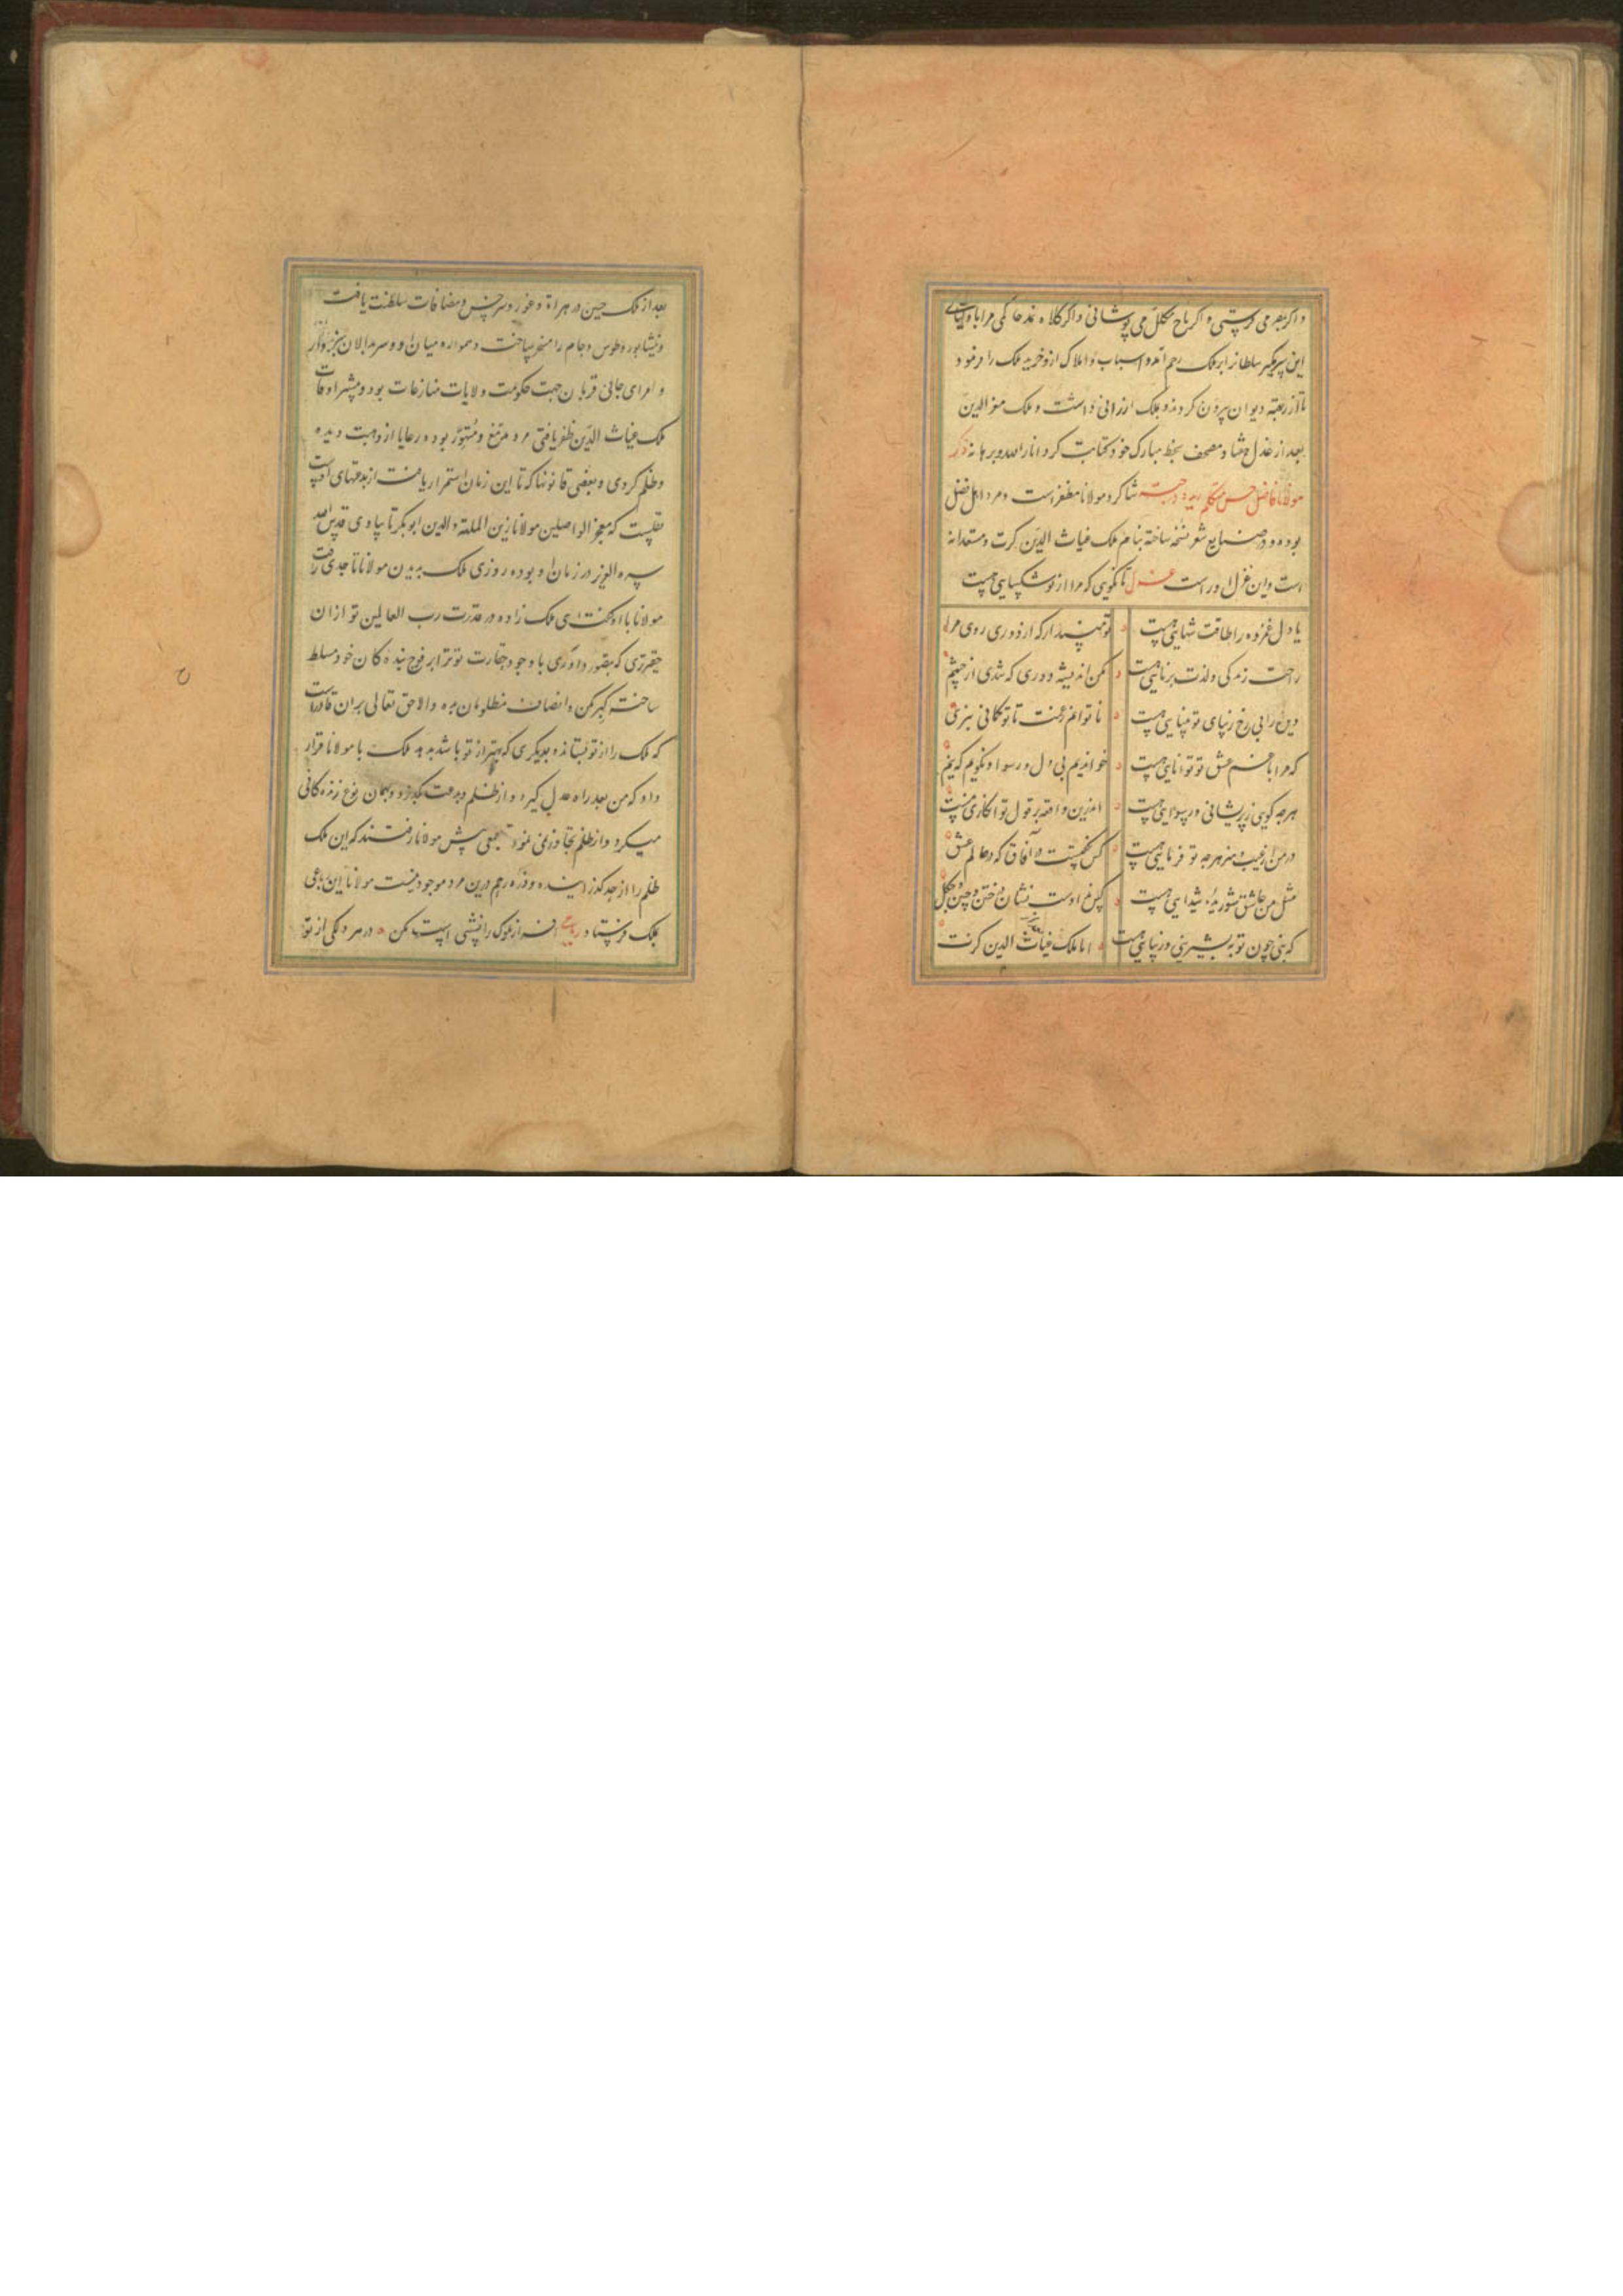 و اگر بمصر می فرستی و اگر تاج مکلل می پوشانی و اگر کلاه نمد حاکمی مرا با و
این پیر سلطانرا بر ملک رحم آمد و اسباب و املاک ازو خرید ملک را فرمود
تا از دیوان بیرون کردند و بملک ارزانی داشت و ملک معز الدین
بعد از عزل هشتاد مصحف بخط مبارک خود کتابت کرد انار الله برهانه ذکر
مولانا فاضل حسن متکلم شاکرد مولانا مظفر است و مرد اهل فضل
بوده و در صنایع شعر نسخه ساخته بنام ملک غیاث الدین کرت و مستعدانه
است و این غزل او راست غزل تا نگویی که مرا از تو شکیبایی هست
یا دل غمزده را طاقت تنهایی هست ه تو مپندار که از دوری روی مرا
راحت زندگی و لذت برنایی هست ه مکن اندیشه دوری که شدی از چشم
دین را بی رخ زیبای تو بینایی هست ه ناتوانم ز غمت تا تو گمانی نبری
که مرا با غم عشق تو توانایی هست ه خواندیم بی دل و رسوا و نگویم که نیم
هرچه گویی ز پریشانی و رسوایی هست ه اندرین واقعه بر قول تو انکاری نیست
در من از عیب و هنر هرچه تو فرمایی هست ه کس نگفتست در آفاق که در عالم عشق
مثل من عاشق شوریده شیدایی هست ه کس نداد است نشان در ختن و چین و چگل
که بتی چون تو به شیرینی و زیبایی هست ه اما ملک غیاث الدین کرت
بعد از ملک حسین در هراة و غور و سرخس و مضافات سلطنت یافت
و نیشابور و طوس و جام را مسخر ساخت و همواره میان او و سربدالان سبزوار
و امرای جانی قربان جهت حکومت ولایات منازعات بود و بیشتر اوقات
ملک غیاث الدین ظفر یافتی مرد و متهور بود و رعایا ازو دیده
و ظلم کردی و بعضی قانونها که تا این زمان استمرار یافت از بدعتهای اوست
نقلست که مولانا زین الملة والدین ابوبکر تایبادی قدس الله
سره العزیز در زمان او بوده روزی ملک بدیدن مولانا رفت
مولانا با او گفت ای ملک زاده در قدرت رب العالمین تو ازان
حقیرتری که داوری با وجود حقارت تو ترا بر فوج بنده کان خود مسلط
ساخته کبر مکن و انصاف مظلومان بده والا حق تعالی بران قادرست
که ملک را از تو بستاند و بدیگری که بهتر از تو باشد بدهد ملک با مولانا قرار
داد که من بعد راه عدل گیرد و از ظلم و بدعت بگذرد و بهمان نوع زندکانی
میکرد و از ظلم تجاوز نمی نمود جمعی پیش مولانا رفتند که این ملک
ظلم را از حد گذرانیده و ذره رحم درین مرد موجود نیست مولانا این رباعی
بملک فرستاد رباعی افراز ملوک را نشیبی است مکن ه در هر دلکی از تو